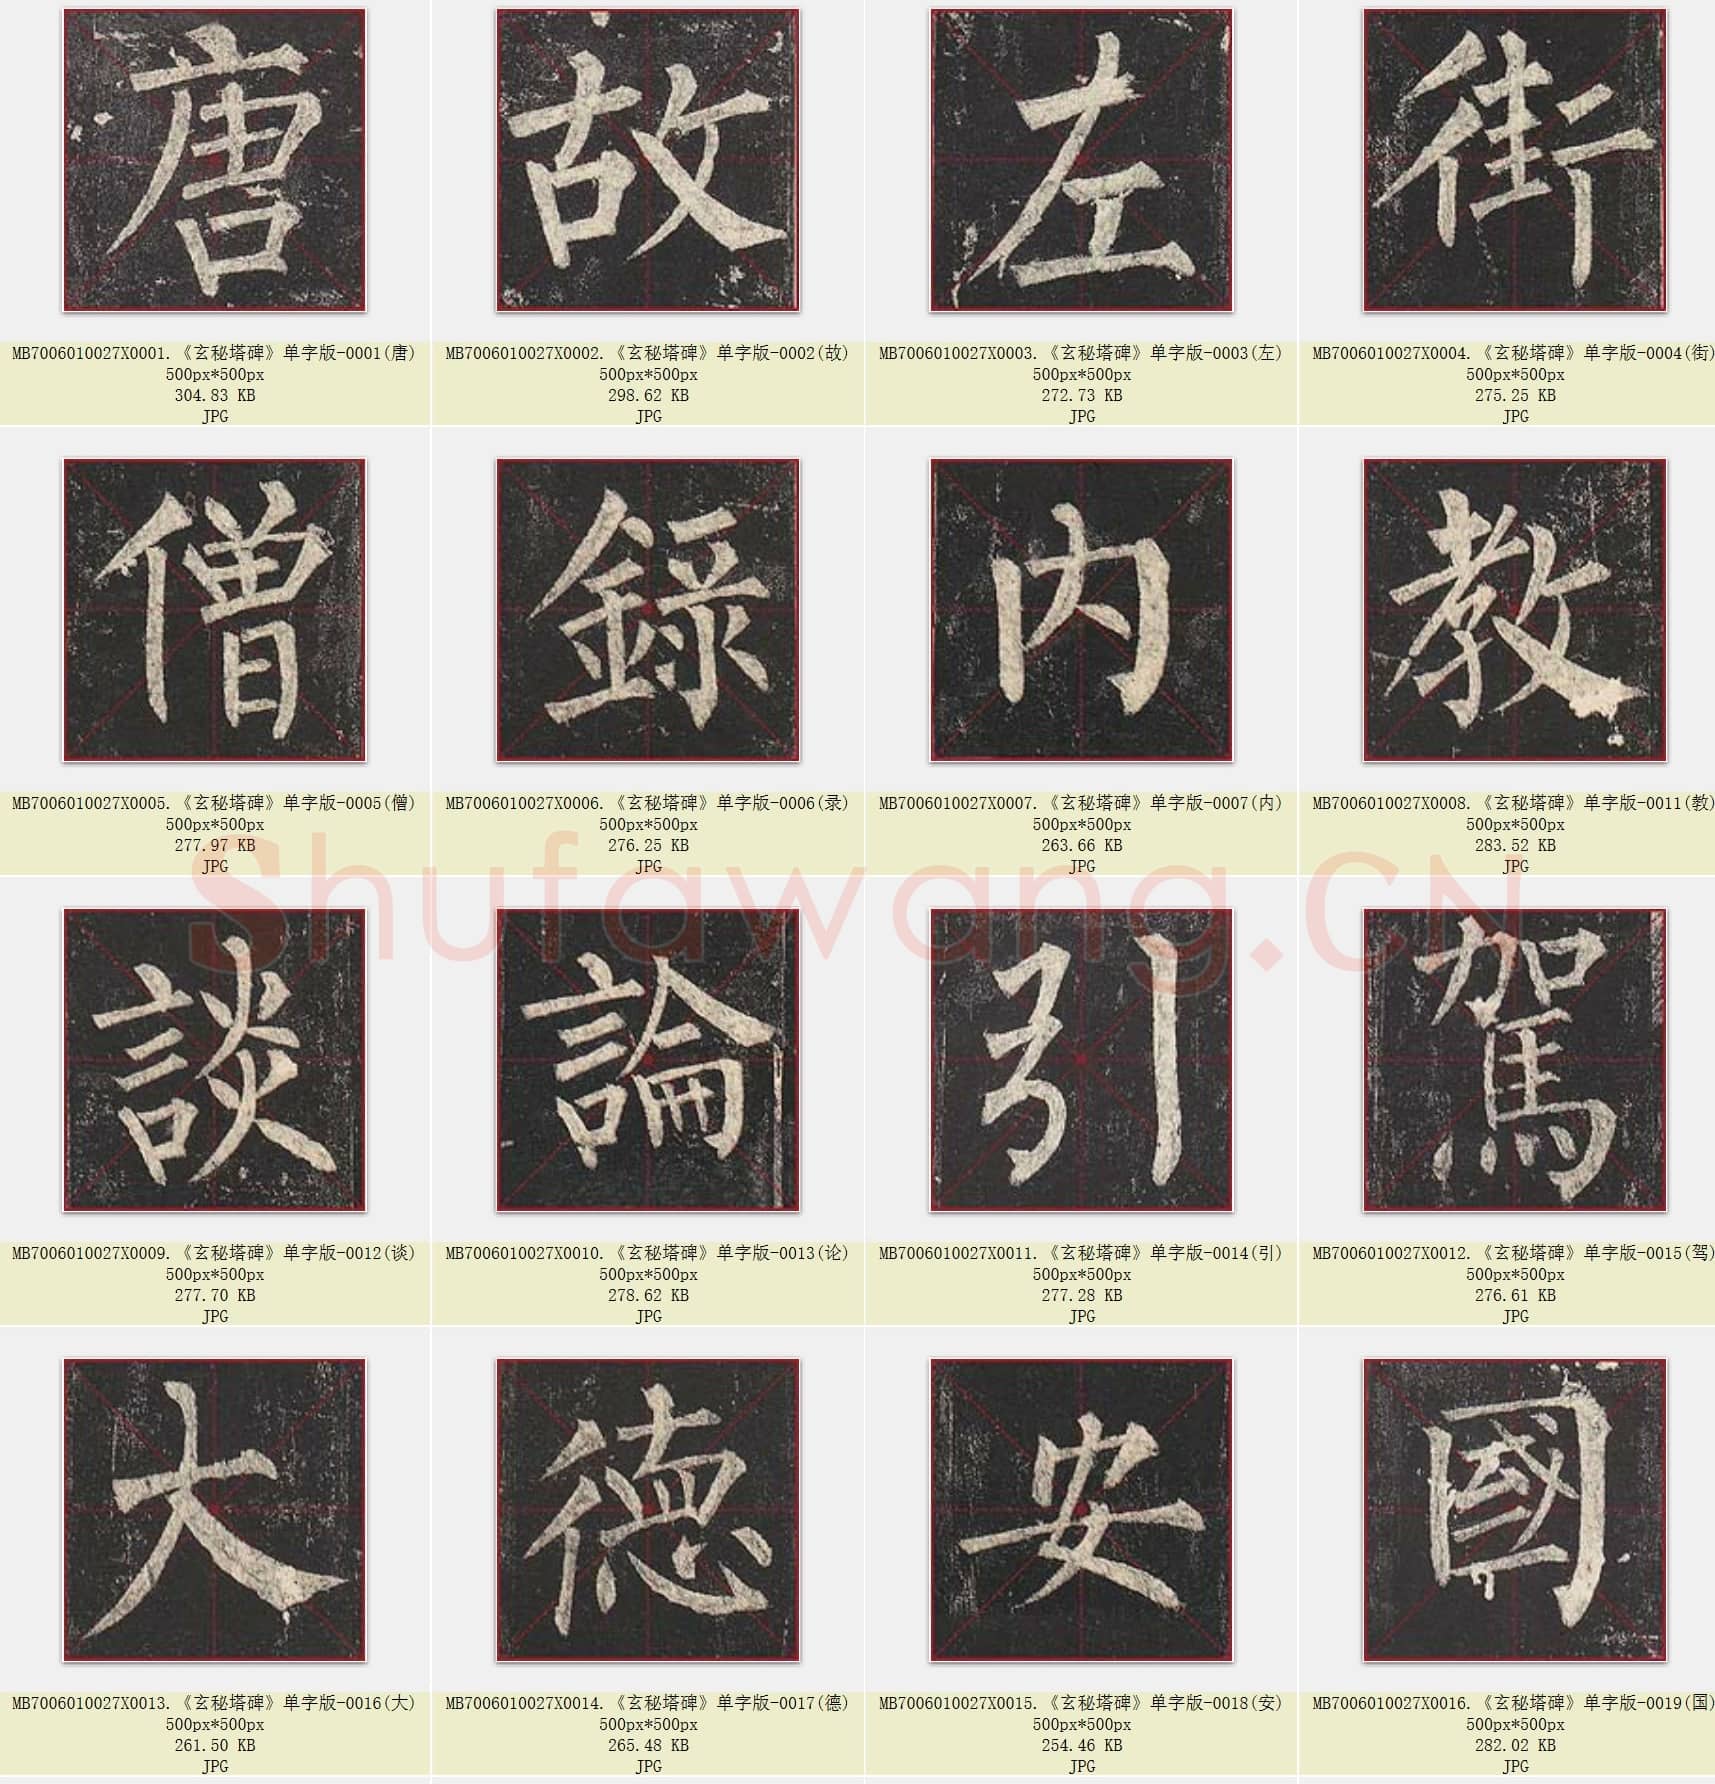 唐 故 左 街
MB7006010027X0001.《玄秘塔碑》单字版-0001(唐) MB7006010027X0002.《玄秘塔碑》单字版-0002(故) MB7006010027X0003.《玄秘塔碑》单字版-0003(左) MB7006010027X0004.《玄秘塔碑》单字版-0004(街)
500px*500px 500px*500px 500px*500px 500px*500px
304.83 KB 298.62 KB 272.73 KB 275.25 KB
JPG JPG JPG JPG
僧 錄 内 教
MB7006010027X0005.《玄秘塔碑》单字版-0005(僧) MB7006010027X0006.《玄秘塔碑》单字版-0006(录) MB7006010027X0007.《玄秘塔碑》单字版-0007(内) MB7006010027X0008.《玄秘塔碑》单字版-0011(教)
500px*500px 500px*500px 500px*500px 500px*500px
277.97 KB 276.25 KB 263.66 KB 283.52 KB
JPG JPG JPG JPG
Shufawang.CN
談 論 引 駕
MB7006010027X0009.《玄秘塔碑》单字版-0012(谈) MB7006010027X0010.《玄秘塔碑》单字版-0013(论) MB7006010027X0011.《玄秘塔碑》单字版-0014(引) MB7006010027X0012.《玄秘塔碑》单字版-0015(驾)
500px*500px 500px*500px 500px*500px 500px*500px
277.70 KB 278.62 KB 277.28 KB 276.61 KB
JPG JPG JPG JPG
大 德 安 國
MB7006010027X0013.《玄秘塔碑》单字版-0016(大) MB7006010027X0014.《玄秘塔碑》单字版-0017(德) MB7006010027X0015.《玄秘塔碑》单字版-0018(安) MB7006010027X0016.《玄秘塔碑》单字版-0019(国)
500px*500px 500px*500px 500px*500px 500px*500px
261.50 KB 265.48 KB 254.46 KB 282.02 KB
JPG JPG JPG JPG